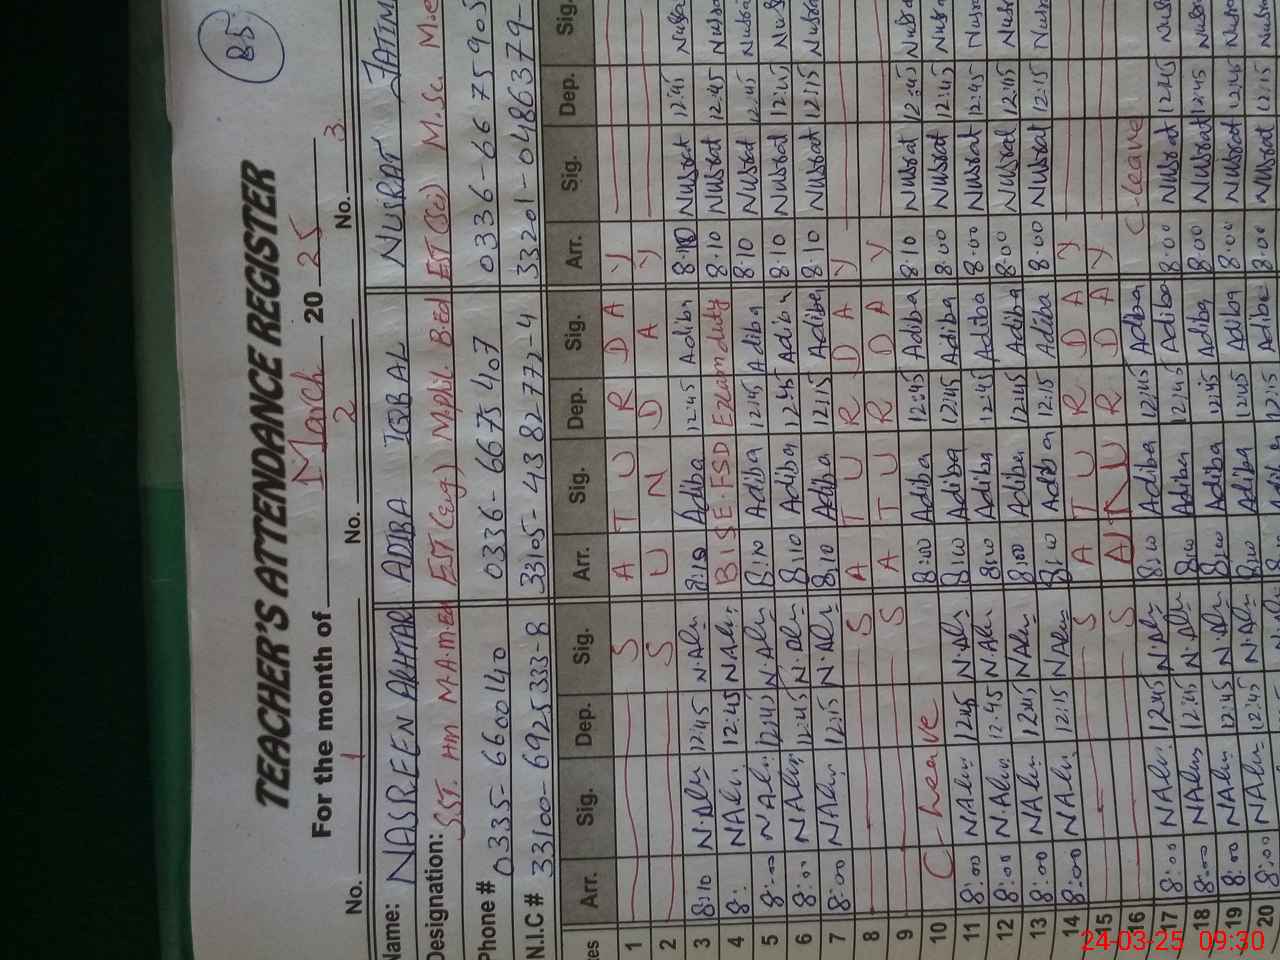 85
TEACHER'S ATTENDANCE REGISTER
For the month of March 2025
No. 1 No. 2 No. 3
Name: NASREEN AKHTAR ADIBA IQBAL NUSRAT FATIM
Designation: SST. HM M.A.M.Ed EST (Eng) M.Phil. B.Ed EST (Sci) M.Sc. M.e
Phone # 0335-6600140 0336-6675407 0336-6675905
N.I.C # 33100-6925333-8 33105-4382777-4 33201-0486379-
tes Arr. Sig. Dep. Sig. Arr. Sig. Dep. Sig. Arr. Sig. Dep. Sig.
1 S A T U R D A Y
2 S U N D A Y
3 8:10 12:45 8:10 Adiba 12:45 Adiba 8:10 Nusrat 12:45 Nusra
4 8: 12:45 BISE-FSD Exam duty 8.10 Nusrat 12.45 Nusra
5 8:00 12:45 8:10 Adiba 12:45 Adiba 8.10 Nusrat 12:45 Nusra
6 8:00 12:45 8:10 Adiba 12:45 Adiba 8.10 Nusrat 12:45 Nus
7 8:00 12:15 8:10 Adiba 12:15 Adiba 8.10 Nusrat 12:15 Nusra
8 S A T U R D A Y
9 S A T U R D A Y
10 C-Leave 8:00 Adiba 12:45 Adiba 8.10 Nusrat 12:45 Nusra
11 8:00 12:45 8:10 Adiba 12:45 Adiba 8.00 Nusrat 12:45 Nusra
12 8:00 12:45 8:00 Adiba 12:45 Adiba 8.00 Nusrat 12:45 Nusra
13 8:00 12:45 8:00 Adiba 12:45 Adiba 8.00 Nusrat 12:45 Nusra
14 8:00 12:15 8:10 Adiba 12:15 Adiba 8.00 Nusrat 12:15 Nusra
15 S A T U R D A Y
16 S U R D A Y
17 8:00 12:45 8:10 Adiba 12:45 Adiba C-Leave
18 8:00 12:45 8:10 Adiba 12:45 Adiba 8.00 Nusrat 12:45 Nusra
19 8:00 12:45 8:10 Adiba 12:45 Adiba 8.00 Nusrat 12:45 Nusra
20 8:00 12:45 8:10 Adiba 12:45 Adiba 8.00 Nusrat 12:45 Nusra
24-03-25 09:30